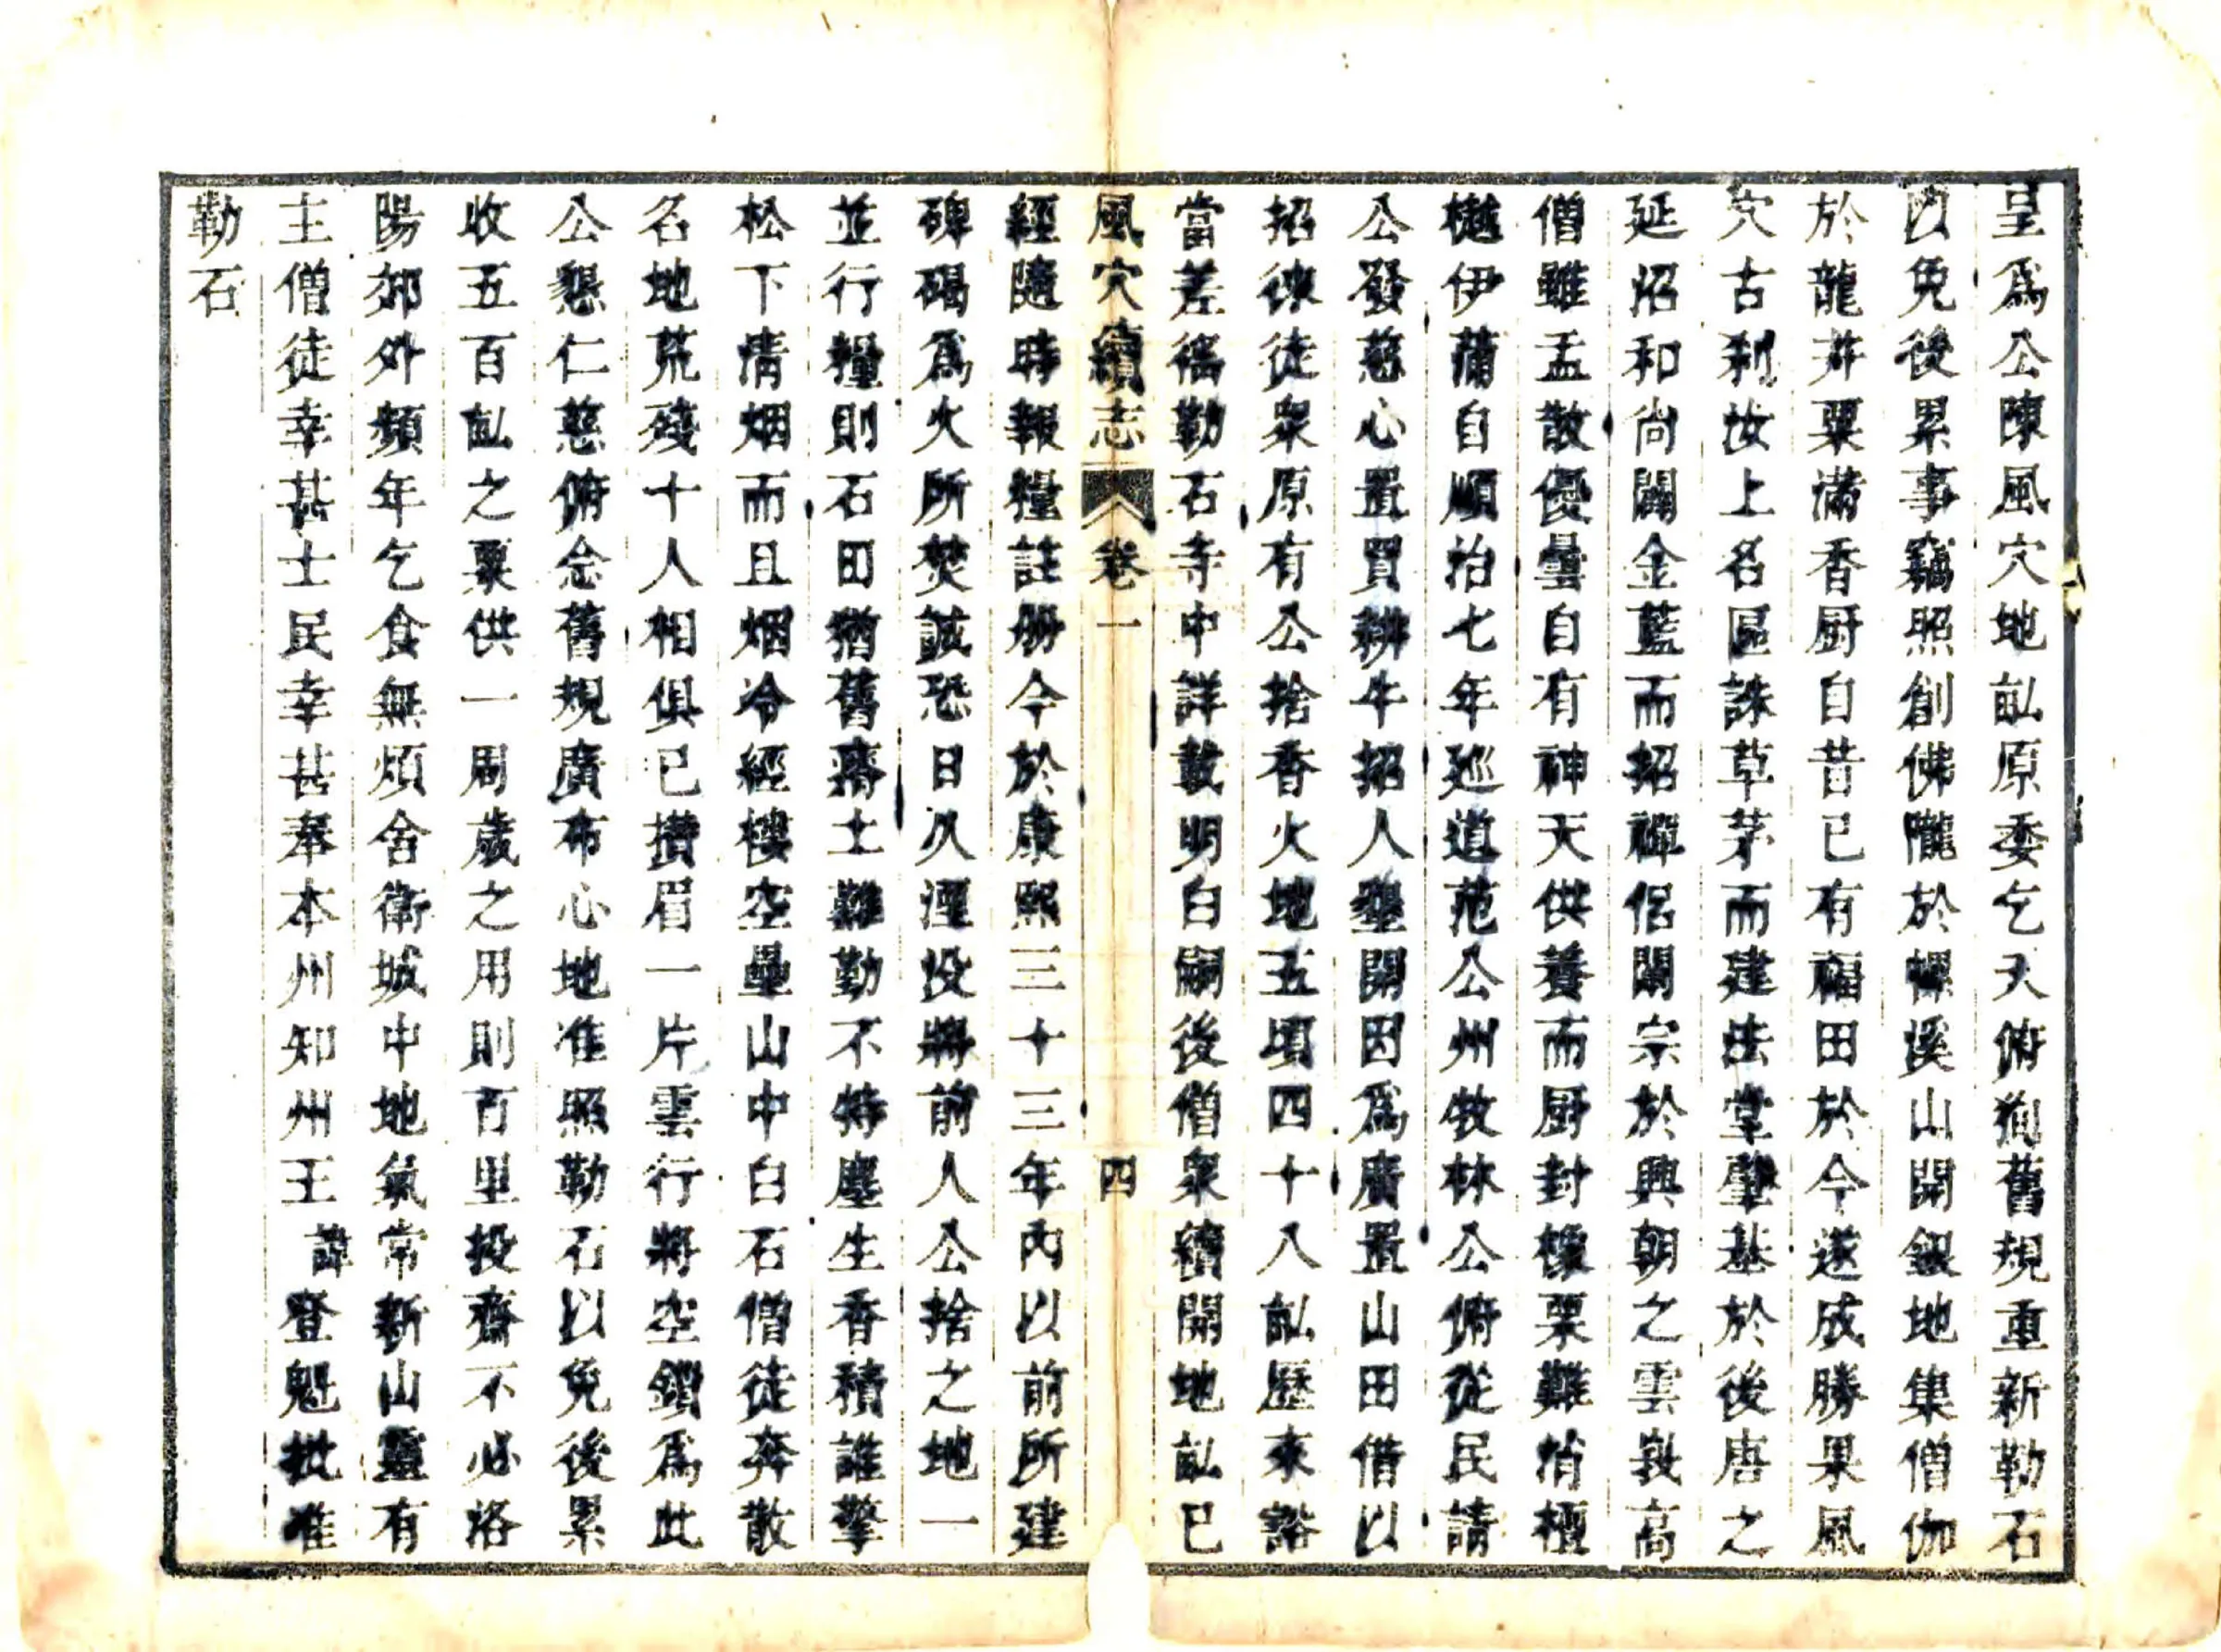 皇爲公陳風穴地畝原委乞天俯徇舊規重新勒石
以免後累事竊照創佛隴於螺溪山開銀地集僧伽
於龍井粟滿香厨自昔已有福田於今遂成勝果風
穴古刹汝上名區誅草茅而建法堂肇基於後唐之
延沼和尚闢金藍而招禪侶闡宗於興朝之雲峩高
僧雖盂散優曇自有神天供養而厨封橡栗難梢極
樾伊蒲自順治七年廵道范公州牧林公俯從民請
公發慈心置買耕牛招人墾開因爲廣置山田借以
招徠徒衆原有公捨香火地五頃四十八畝歷來豁
當差徭勒石寺中詳載明白嗣後僧衆續開地畝已
風穴續志 卷一 四
經隨時報糧註册今於康熙三十三年內以前所建
碑碣爲火所焚誠恐日久湮没將前人公捨之地一
並行糧則石田猶舊瘠土難勤不特塵生香積誰擎
松下清烟而且烟冷經樓空壘山中白石僧徒奔散
名地荒殘十人相俱已攢眉一片雲行將空鎖爲此
公懇仁慈俯念舊規廣布心地准照勒石以免後累
收五百畝之粟供一周歲之用則百里投齋不必洛
陽郊外頻年乞食無煩舍衛城中地氣常新山靈有
主僧徒幸甚士民幸甚奉本州知州王諱登魁批准
勒石